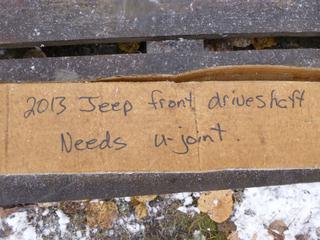 2013 Jeep front driveshaft
Needs u-joint.